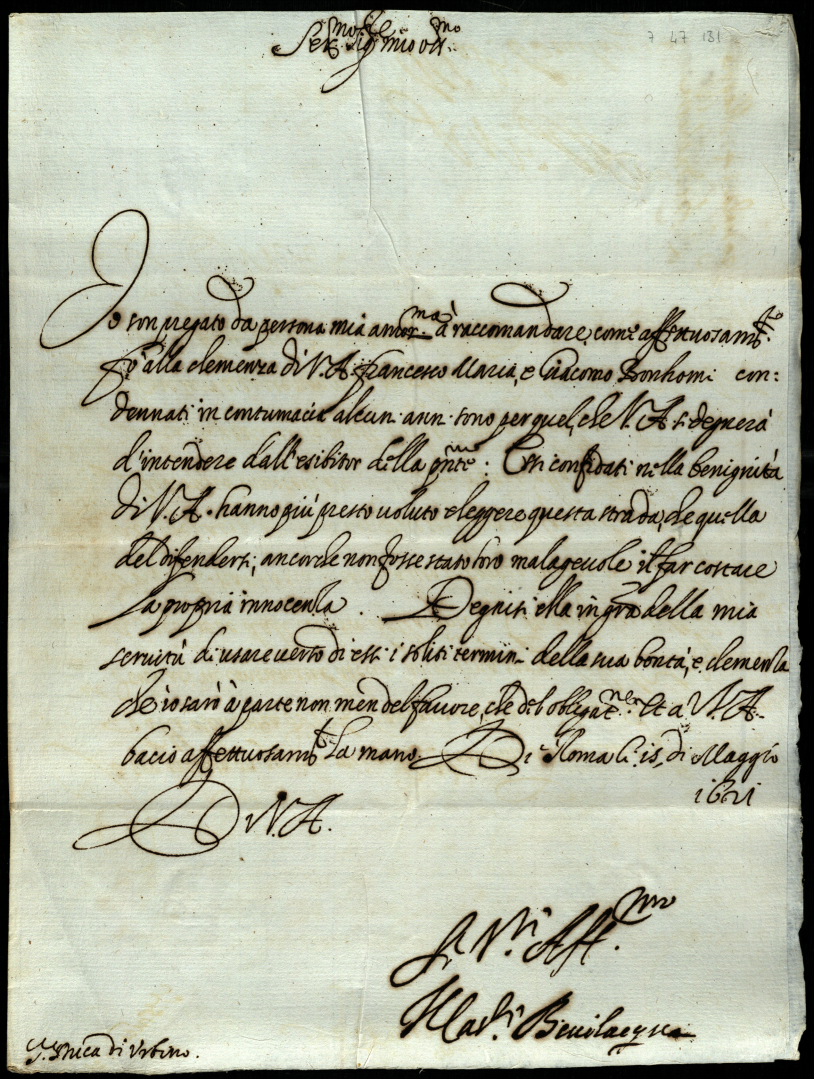 7 47 131
Ser.mo Sig.re mio oss.mo
Io son pregato da persona mia amor.ma à raccomandare, come affettuosam.te
fò alla clemenza di V.A. Francesco Maria, e Giacomo Bonhomi con:
dennati in contumacia alcuni anni sono per quel, che V.A. si degnerà
d'intendere dall'esibitor della pn̄te: Essi confidati nella benignità
di V.A. hanno più presto voluto eleggere questa strada, che quella
del difendersi, ancorche non fosse stato loro malagevole il far costare
la propria innocenza. Degnisi ella in gra della mia
servitù di usare verso di essi i soliti termini della sua bontà, e clemenza
che io sarò à parte non men del favore, che del obligat.ne Et a V.A.
bacio affettuosam.te la mano. Di Roma li 15. di Maggio
1621
Di V.A.
Aff.mo
Bevilacqua
S. Duca di Urbino.